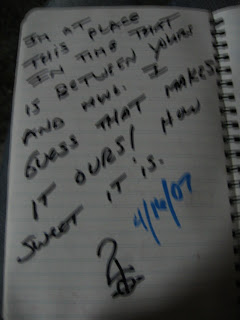 IM AT PLACE
THIS
IN TIME THAT
IS BETWEEN YOURS
AND MINE. I
GUESS THAT MAKES
IT OURS! HOW
SWEET IT IS.
4/16/07